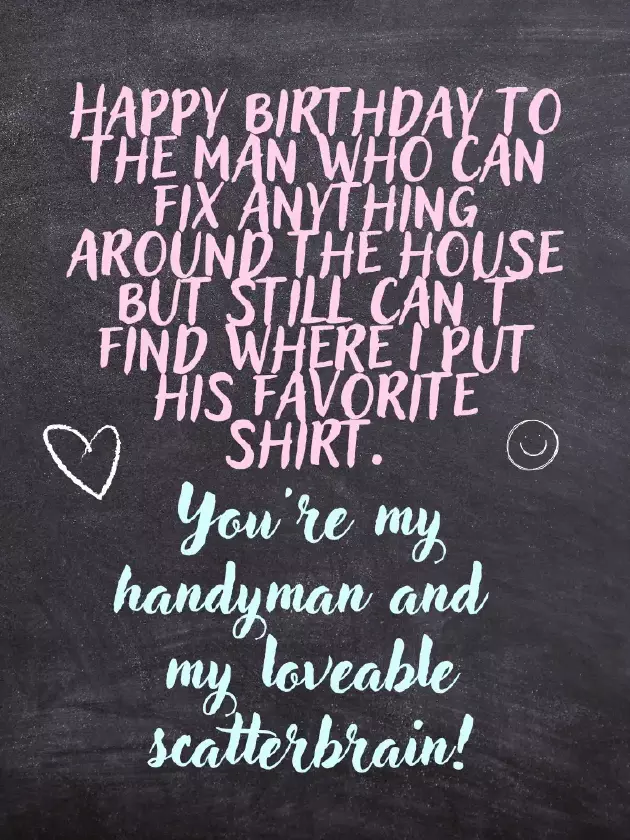 HAPPY BIRTHDAY TO
THE MAN WHO CAN
FIX ANYTHING
AROUND THE HOUSE
BUT STILL CAN T
FIND WHERE I PUT
HIS FAVORITE
SHIRT.
You're my
handyman and
my loveable
scatterbrain!